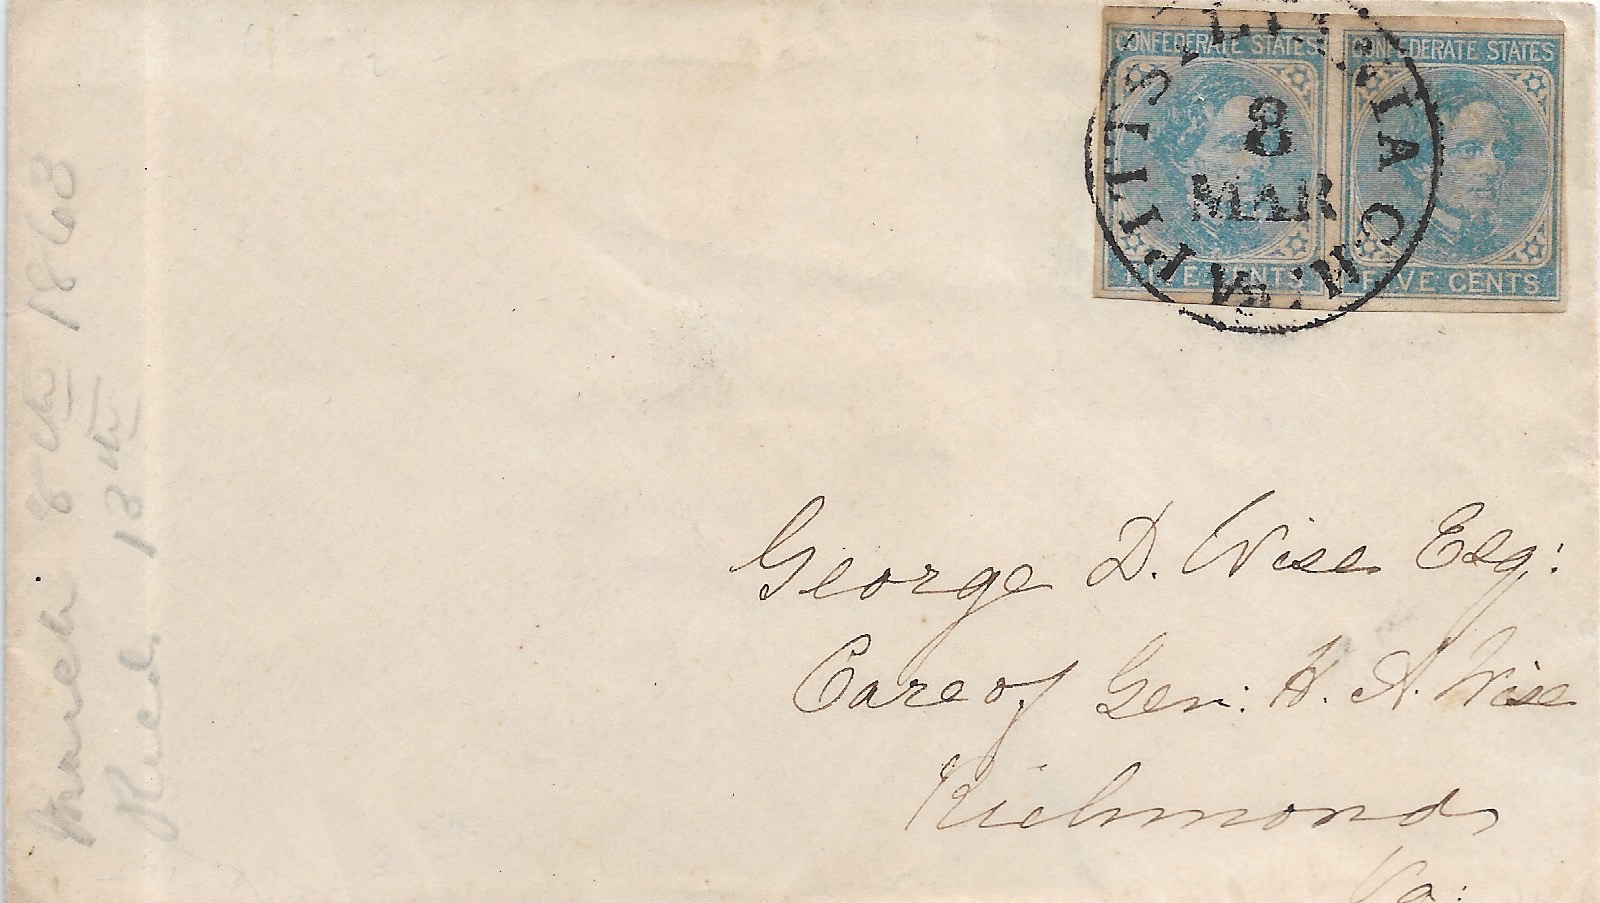 CONFEDERATE STATES
CONFEDERATE STATES
PITTSYLVANIA C.H. VA
8
MAR
FIVE CENTS
FIVE CENTS
March 8th 1863
Recd. 13th
George D. Wise Esq:
Care of Gen: H. A. Wise
Richmond
Va: